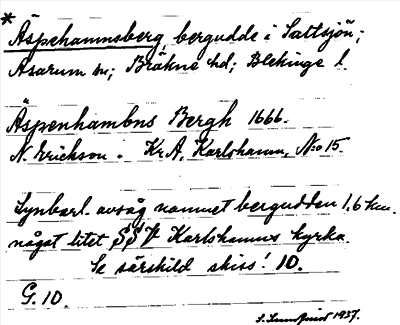 * Äspehamnsberg, bergudde i Saltsjön;
Asarum sn; Bräkne hd; Blekinge l.
Äspenhambns Bergh 1666.
N. Erickson. Kr.A, Karlshamn, N:o 15.
Synbarl. avsåg namnet bergudden 1.6 km.
något litet SSV Karlshamns kyrka.
Se särskild skiss! 10.
G. 10.
S. Lundqvist 1937.